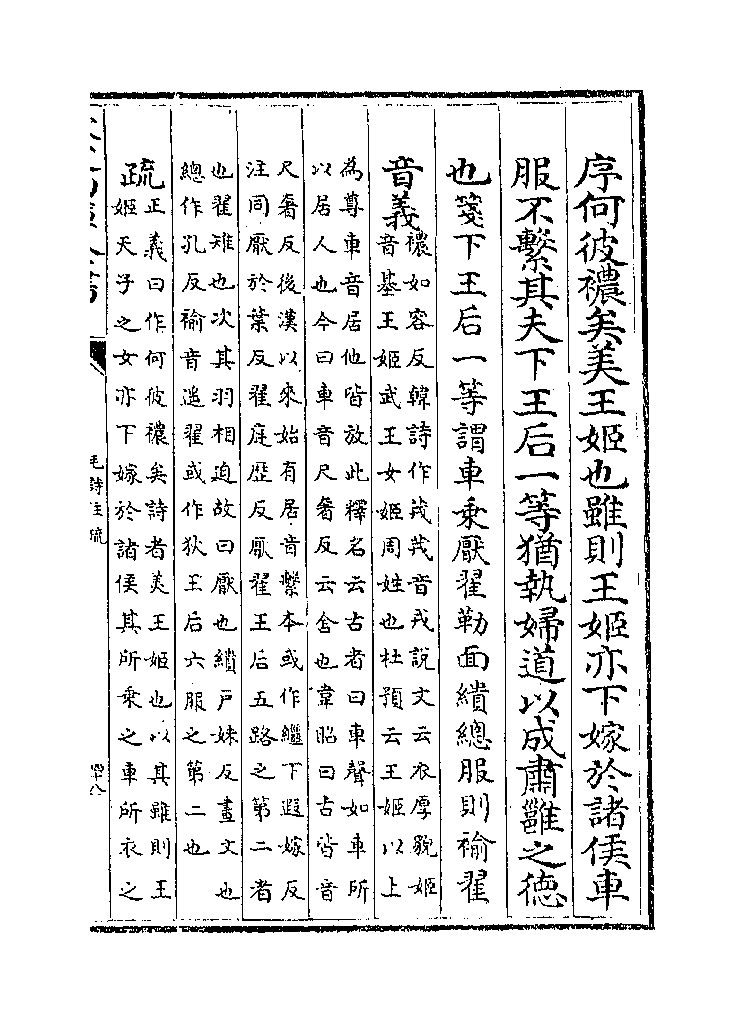 序何彼襛矣美王姬也雖則王姬亦下嫁於諸侯車
服不繫其夫下王后一等猶執婦道以成肅雝之德
也箋下王后一等謂車乘厭翟勒面繢總服則褕翟
音義襛如容反韓詩作茙茙音戎說文云衣厚貌姬
音基王姬武王女姬周姓也杜預云王姬以上
為尊車音居他皆放此釋名云古者曰車聲如車所
以居人也今曰車音尺奢反云舍也韋昭曰古皆音
尺奢反後漢以來始有居音繫本或作繼下遐嫁反
注同厭於葉反翟庭歷反厭翟王后五路之第二者
也翟雉也次其羽相迫故曰厭也繢戸妹反畫文也
總作孔反褕音遙翟或作狄王后六服之第二也
疏正義曰作何彼襛矣詩者美王姬也以其雖則王
姬天子之女亦下嫁於諸侯其所乘之車所衣之
毛詩注疏